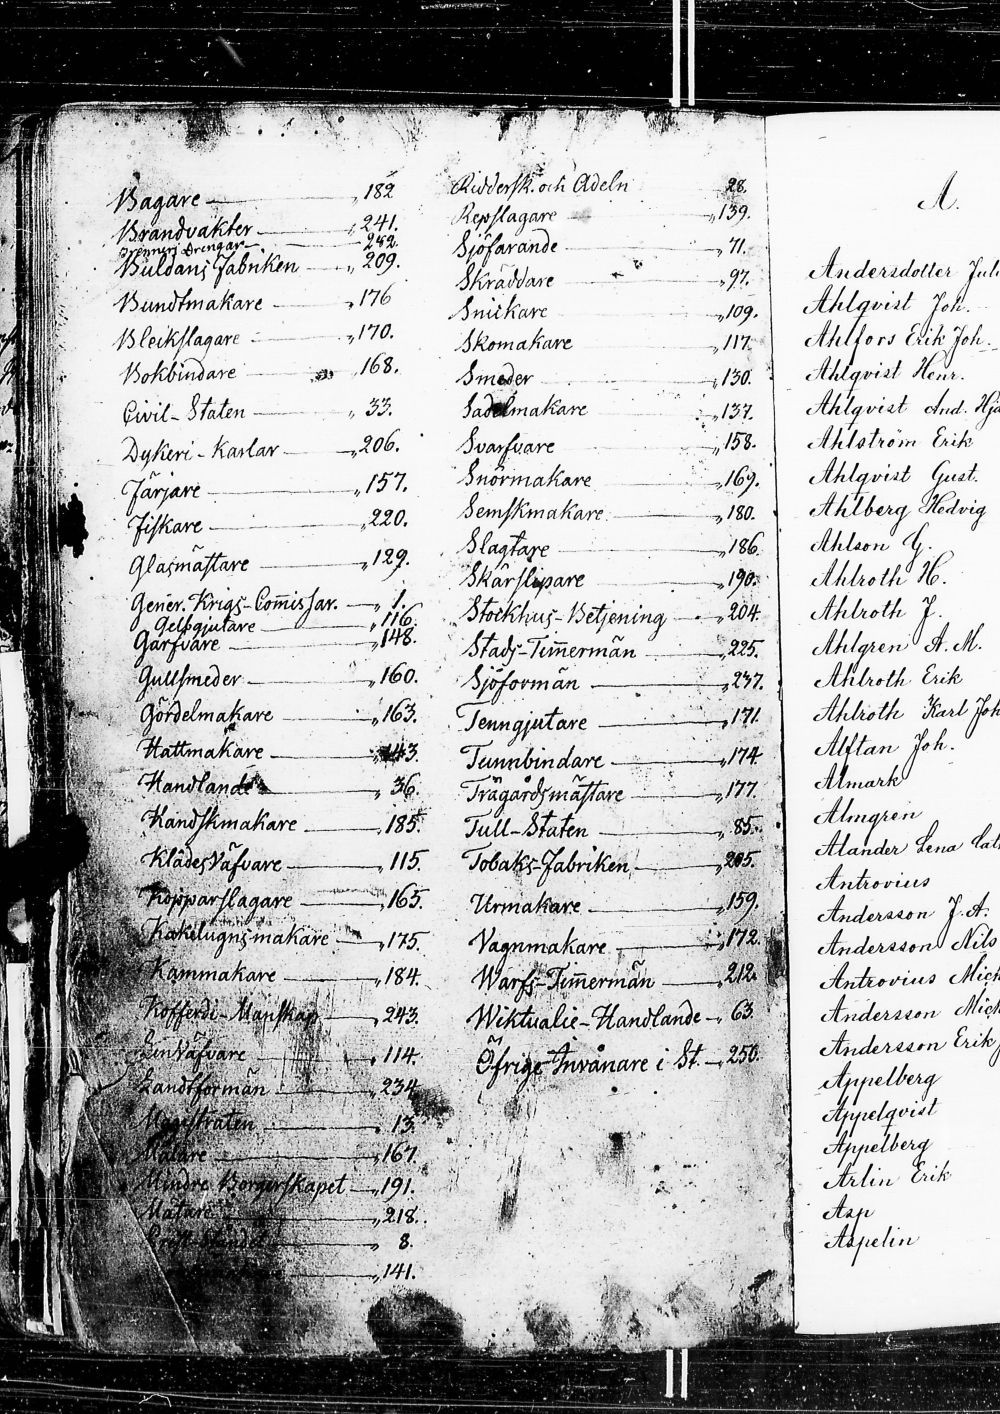 Bagare „ 182
Brandvakter „ 241.
Brenneri Drengar 282.
Buldans Fabriken „ 209.
Bundtmakare „ 176
Bleckslagare „ 170.
Bokbindare „ 168.
Civil-Staten „ 33.
Dykeri-Karlar „ 206.
Färjare „ 157.
Fiskare „ 220.
Glasmästare „ 129.
Gener. Krigs-Com̄issar. „ 1.
Gelbgjutare „ 116.
Garfvare „ 148.
Gullsmeder „ 160.
Gördelmakare „ 163.
Hattmakare „ 143.
Handlande „ 36.
Handskmakare „ 185.
Klädesväfvare „ 115.
Kopparslagare „ 165.
Kakelugnsmakare „ 175.
Kammakare „ 184.
Kofferdi-Manskap „ 243.
Linväfvare „ 114.
Landtformän „ 234
Magistraten „ 13.
Målare „ 167.
Mindre Borgerskapet „ 191.
Mätare „ 218.
Prest-Ståndet „ 8.
„ 141.
Riddersk. och Adeln 28.
Repslagare „ 139.
Sjöfarande „ 71.
Skräddare „ 97.
Snickare „ 109.
Skomakare „ 117.
Smeder „ 130.
Sadelmakare „ 137.
Svarfvare „ 158.
Snörmakare „ 169.
Semskmakare „ 180.
Slagtare „ 186.
Skärslipare „ 190.
Stockhus-Betjening „ 204.
Stads-Tim̄ermän „ 225.
Sjöformän „ 237.
Tenngjutare „ 171.
Tunnbindare „ 174
Trägårdsmästare „ 177.
Tull-Staten „ 85.
Tobaks-Fabriken „ 205.
Urmakare „ 159.
Vagnmakare „ 172.
Warfs-Tim̄ermän „ 212.
Wiktualie-Handlande „ 63.
Öfrige Invånare i St. „ 250.
A.
Andersdotter
Ahlqvist Joh.
Ahlfors Erik Joh.
Ahlqvist Henr.
Ahlqvist And.
Ahlström Erik
Ahlqvist Gust.
Ahlberg Hedvig
Ahlson G.
Ahlroth H.
Ahlroth J.
Ahlgren A. M.
Ahlroth Erik
Ahlroth Karl Joh
Alftan Joh.
Almark
Almgren
Alander Lena
Antrovius
Andersson J. A.
Andersson Nils
Antrovius Mich
Andersson Mich
Andersson Erik
Appelberg
Appelqvist
Appelberg
Arlin Erik
Asp
Aspelin